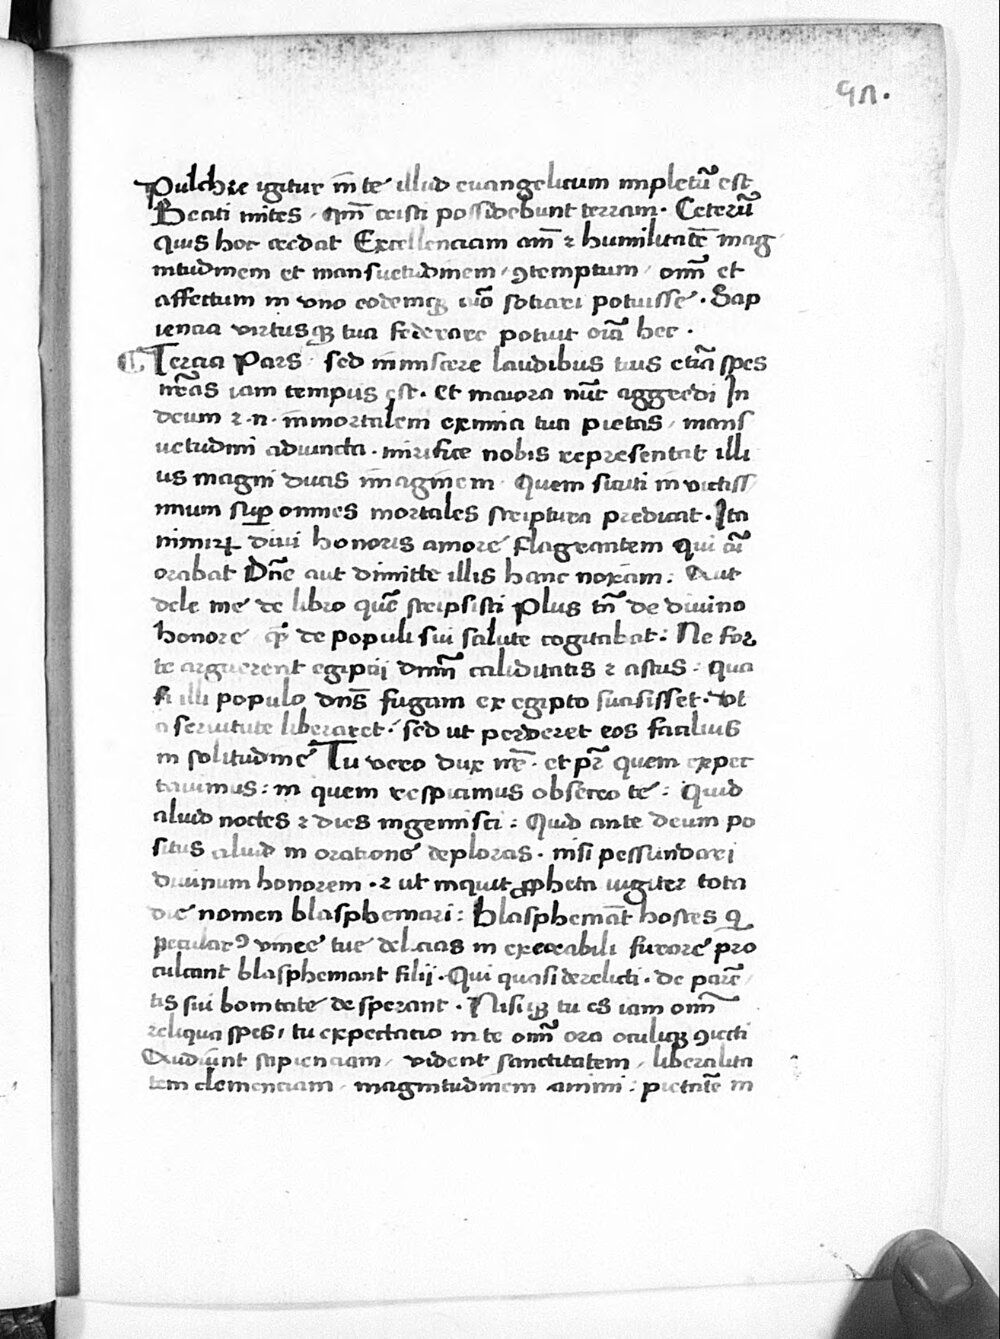 97.
Pulchre igitur in te illud euangelicum impletū est
Beati mites . qm̄ ceisti possidebunt terram . Ceterū
quis hoc credat Excellenciam aīm ⁊ humilitatē mag
nitudinem et mansuetudinem / ꝯtemptum / omī et
affectum in vno eodemqꝫ uīo sotiari potuisse . Sap
iencia virtusqꝫ tua federare potuit oīa hec .
Tercia Pars / sed inmiscere laudibus tuis etiā spes
nr̄as iam tempus est . et maiora nūc aggredi In
deum ⁊ .n. inmortalem eximia tua pietas / mans
uetudini adiuncta . mirifice nobis representat illi
us magni ducis imaginem . Quem sicuti inuictiss
imum suꝑ omnes mortales scriptura predicat . Ita
nimirꝝ diui honoris amore flagrantem qui cū
orabat Dn̄e aut dimitte illis hanc noxam : Aut
dele me de libro quē scripsisti Plus tn̄ de diuino
honore qͣꝫ de populi sui salute cogitabat : Ne for
te arguerent egiptij dnm̄ caliditatis ⁊ astus : qua
si illi populo dn̄s fugam ex egipto suasisset . vt
a seruitute liberaret . sed ut perderet eos facilius
in solitudine Tu vero dux nr̄e . et pr̄ quem expec
tauimus : in quem respicimus obsecro te : Quid
aliud noctes ⁊ dies ingemisci : Quid ante deum po
situs aliud in oratione deploras . nisi pessundari
diuinum honorem . ⁊ ut inquit ꝓpheta iugiter tota
die nomen blasphemari : blasphemāt hostes q
pecularꝰ vinee tue delicias in execrabili furore pro
culcant blasphemant filij . Qui quasi derelicti . de parē
tis sui bonitate desperant . Nisiqꝫ tu es iam omī
reliqua spes / tu expectacio in te omī ora oculiqꝫ ꝯiecti
Audiunt sapienciam / vident sanctitatem / liberalita
tem clemenciam / magnitudinem animi : pietatē in